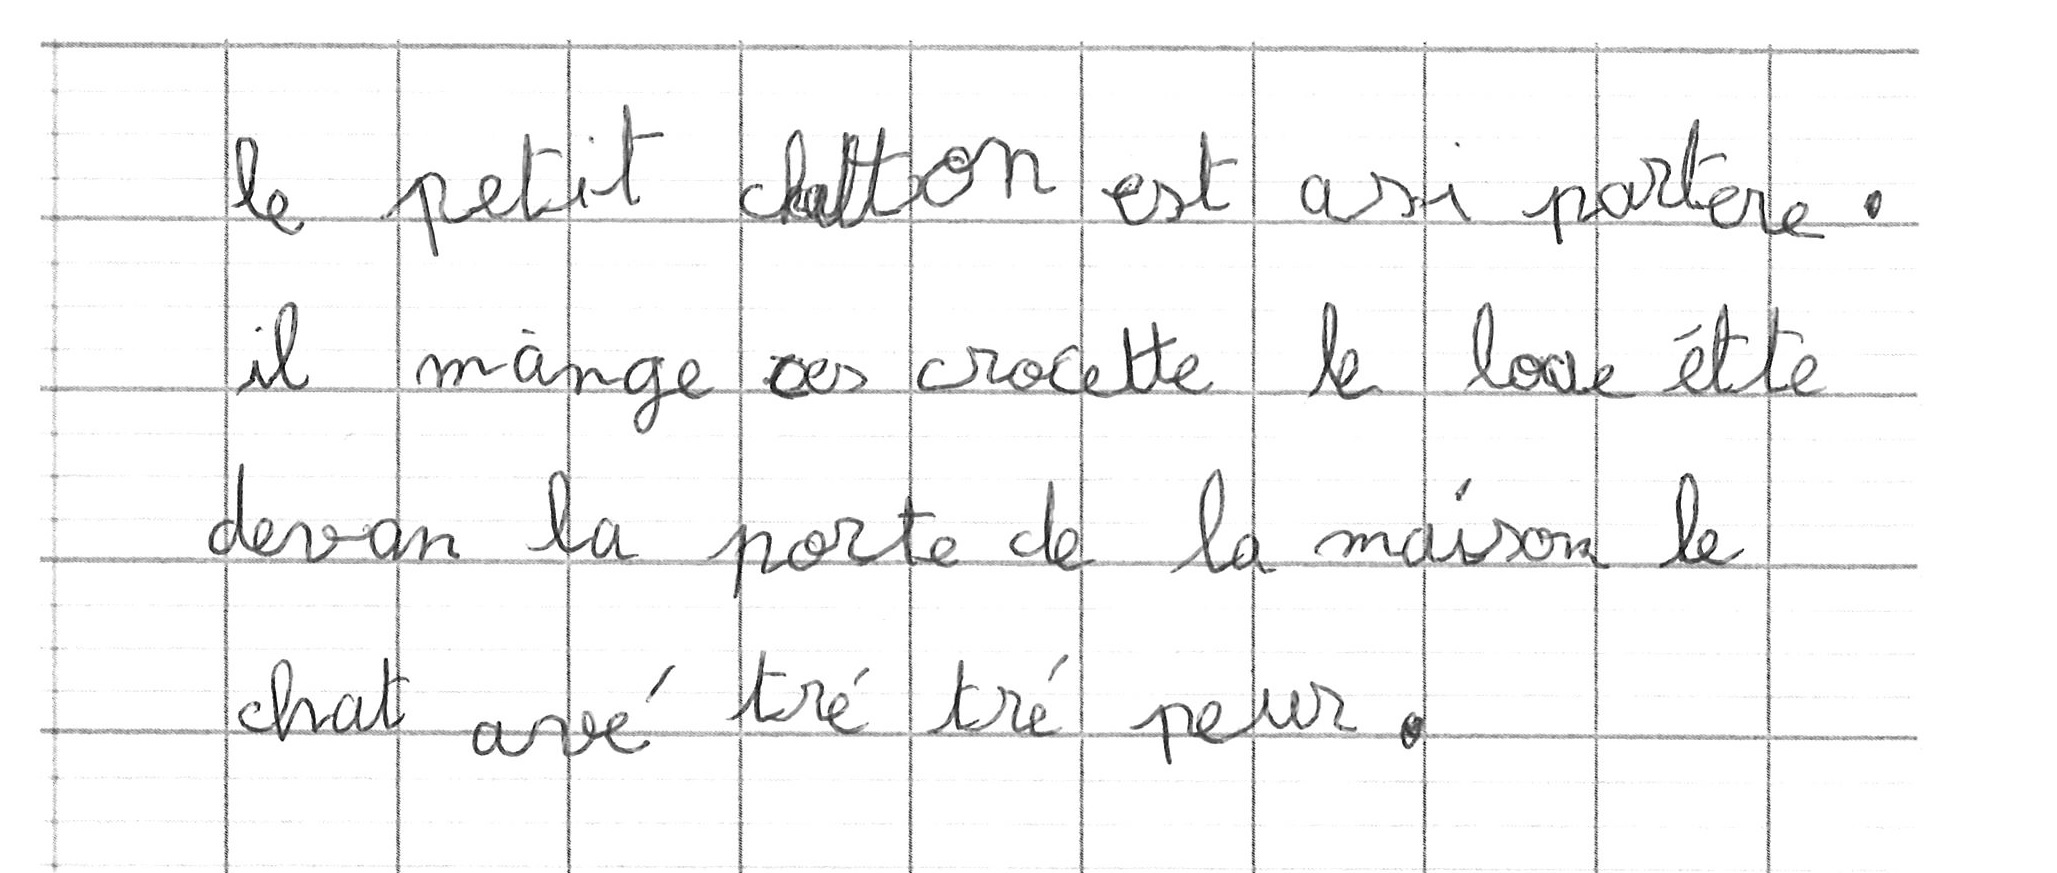 le petit chatton est asi partere.
il mange ces crocette le loue étte
devan la porte de la maison le
chat avé tré tré peur.